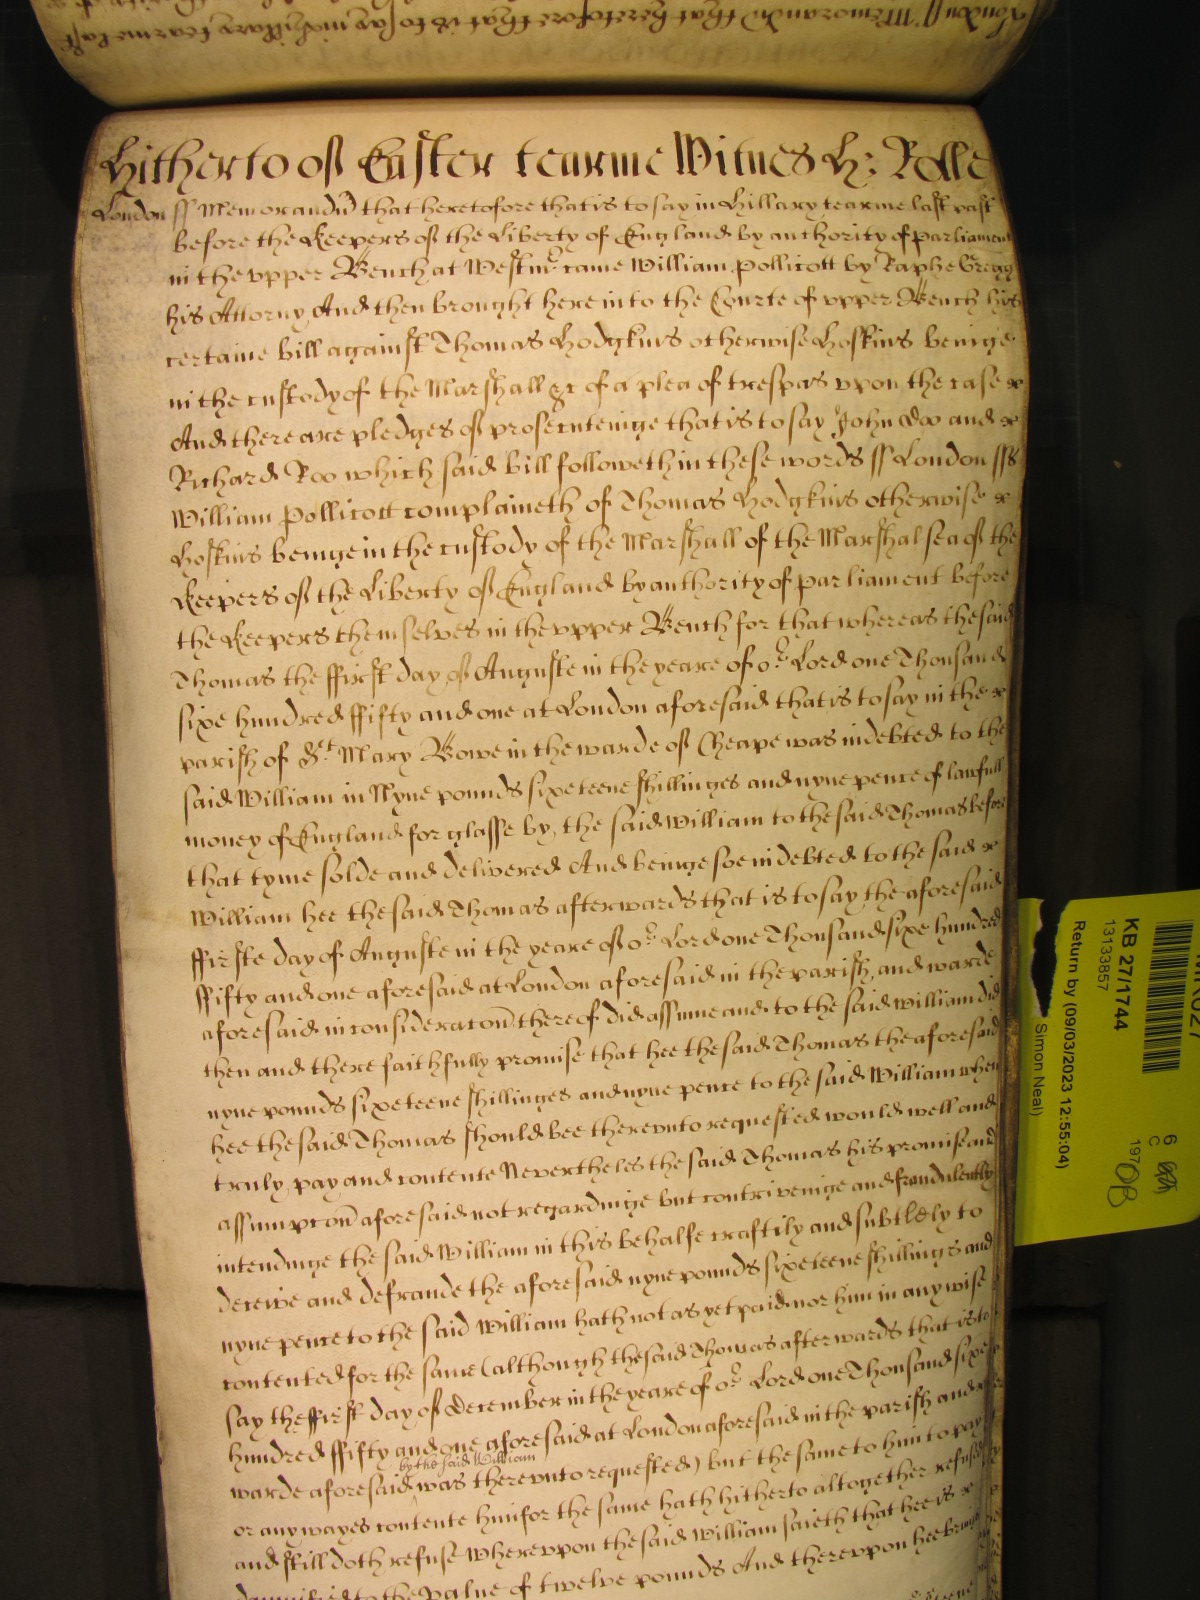 London ss Memorand that heretofore that is to say in hillary tearme last
Hitherto of Easter tearme Witnes H: Rolle
London ss Memorandu that heretofore that is to say in hillary tearme last past
before the Keepers of the Liberty of England by authority of parliament
in the vpper Bench at Westmr came William Pollicott by Raphe Gregg
his Attorny And then brought here into the Courte of vpper Bench his
certaine bill against Thomas Hodgkins otherwise Hoskins beinge
in the custody of the Marshall &c of a plea of trespas vpon the case
And there are pledges of prosecuteinge that is to say John Doo and
Richard Roo which said bill followeth in these words ss London ss
William Pollicott complaineth of Thomas Hodgkins otherwise
Hoskins beinge in the custody of the Marshall of the Marshalsea of the
Keepers of the Liberty of England by authority of parliament before
the Keepers themselves in the vpper Bench for that whereas the said
Thomas the ffirst day of Auguste in the yeare of or Lord one Thousand
sixe hundred ffifty and one at London aforesaid that is to say in the
parish of St Mary Bowe in the warde of Cheape was indebted to the
said William in Nyne pounds sixeteene shillinges and nyne pence of lawfull
money of England for glasse by the said William to the said Thomas before
that tyme solde and delivered And beinge soe indebted to the said
William hee the said Thomas afterwards that is to say the aforesaid
ffirste day of Auguste in the yeare of or Lord one Thousand sixe hundred
ffifty and one aforesaid at London aforesaid in the parish and warde
aforesaid in consideracon thereof did assume and to the said William did
then and there faithfully promise that hee the said Thomas the aforesaid
nyne pounds sixeteene shillinges and nyne pence to the said William when
hee the said Thomas should bee therevnto requested would well and
truly pay and contente Nevertheles the said Thomas his promise and
assumpcon aforesaid not regardinge but contriveinge and fraudulently
intendinge the said William in this behalfe craftily and subtlely to
deceive and defraude the aforesaid nyne pounds sixeteene shillings and
nyne pence to the said William hath not as yet paid nor him in any wise
contented for the same (although the said Thomas afterwards that is to
say the ffirst day of December in the yeare of or Lord one Thousand sixe
hundred ffifty and one aforesaid at London aforesaid in the parish and
by the said William
warde aforesaid was therevnto requested) but the same to him to pay
or any wayes contente him for the same hath hitherto altogether refused
and still doth refuse Wherevpon the said William saieth that hee is
damnified to the value of twelve pounds And therevpon hee bringe
KB 27/1744
13133857
Return by (09/03/2023 12:55:04)
Simon Neal)
6
C
197